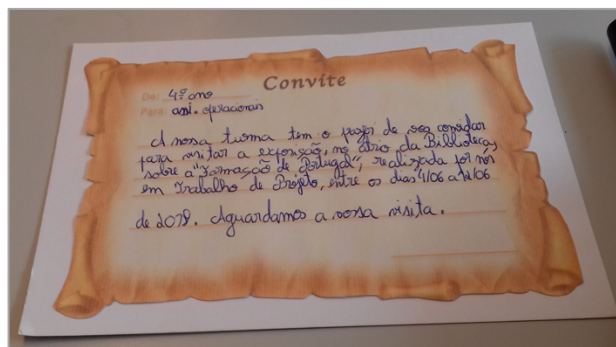 Convite
De: 4º ano
Para: assi. operacionais
A nossa turma tem o prazer de vos convidar
para visitar a exposição, no átrio da Biblioteca,
sobre a "Formação de Portugal", realizada por nós
em Trabalho de Projeto, entre os dias 4/06 a 12/06
de 2018. Aguardamos a vossa visita.